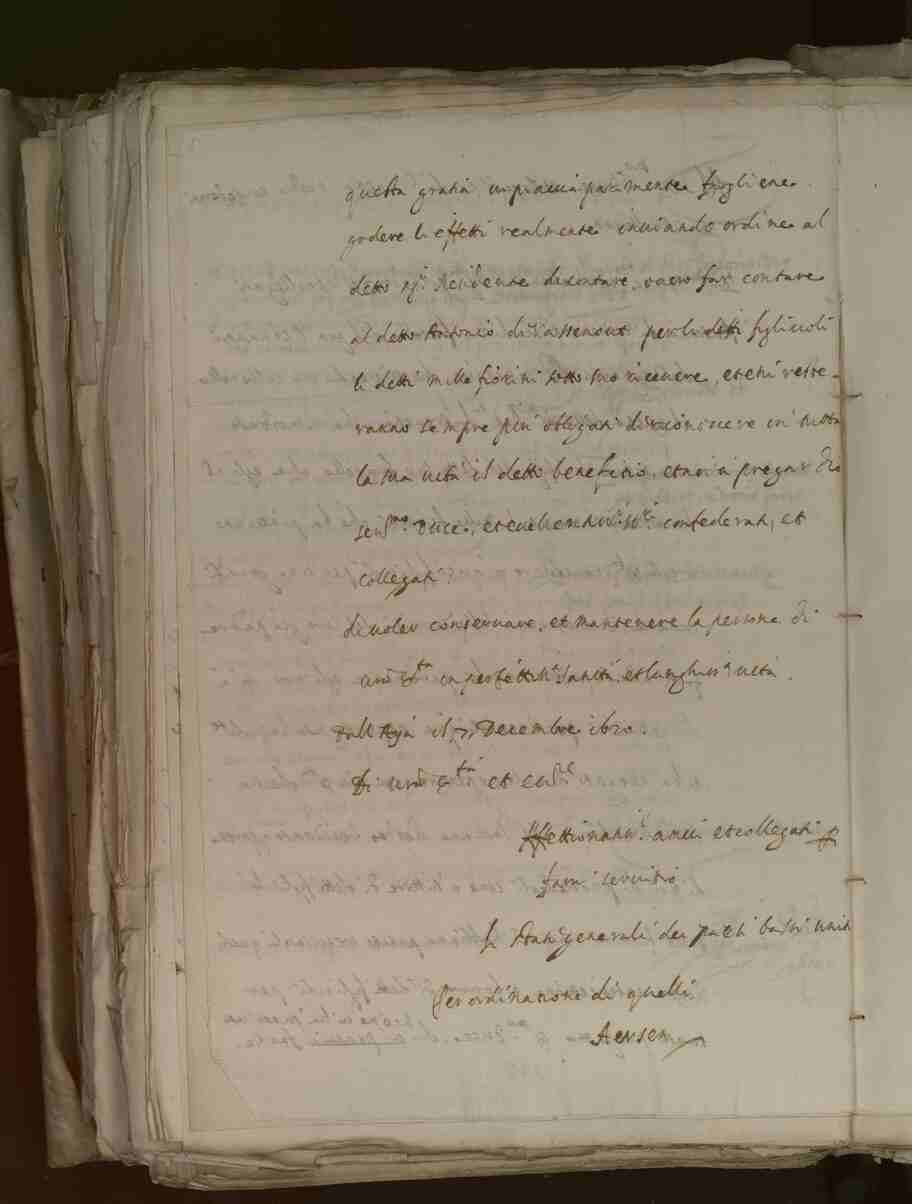 questa gratia in piaccia parimente fargliene
godere li effetti realmente inviando ordine al
detto s.r Residente di contare, overo far contare
al detto Antonio di per li detti figlivoli
li detti mille fiorini sotto suo ricevere, et che reste-
ranno sempre piu obligati di riconoscere in tutta
la sua vita il detto beneficio, et noi a pregar Dio
ser.mo Duce, confederati, et
collegati.
di voler conservare, et mantenere la persona di
vra S.tà in perfettiss.a sanità, et lunghiss.a vita.
Dall Aja il 7, Decembre 1620.
Di vra S.tà et
Affettionatiss.i amici et collegati p
farvi servitio
Li Stati generali dei paesi bassi uniti
Per ordinatione di quelli
Aersen